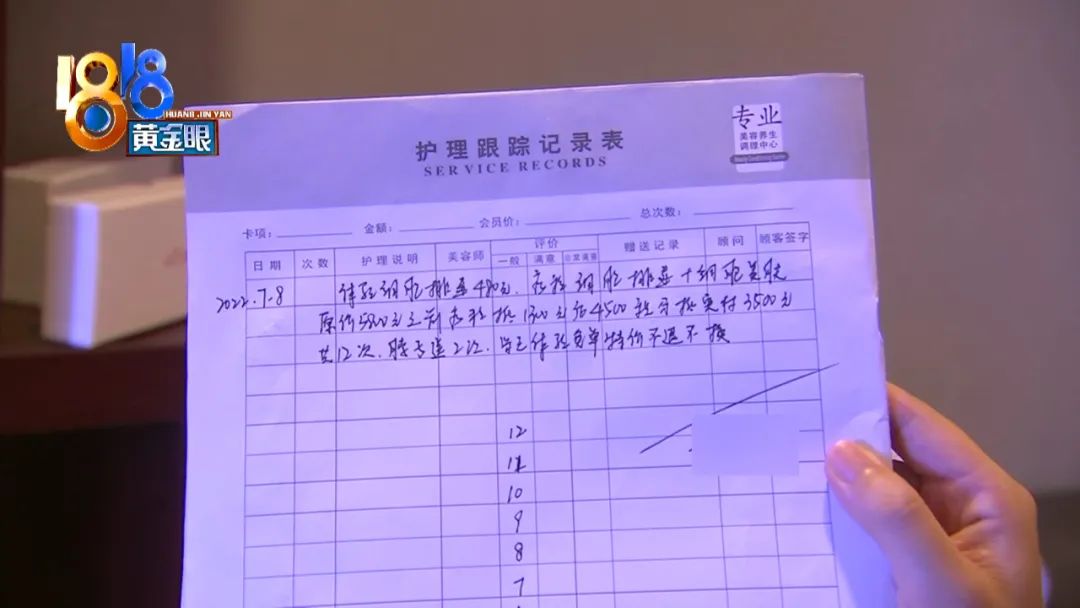 1818
HUANG JIN YAN
黄金眼
专业
美容养生
调理中心
护理跟踪记录表
SERVICE RECORDS
卡项: 金额: 会员价: 总次数:
日期 次数 护理说明 美容师 评价 赠送记录 顾问 顾客签字
一般 满意 非常满意
2022.7.8 体验细胞排毒480元. 疗程细胞排毒+细胞美肤
原价5800元 1300元 4500 3500元
共12次. 送2次. 体验免单特价不退不换
12
11
10
9
8
7